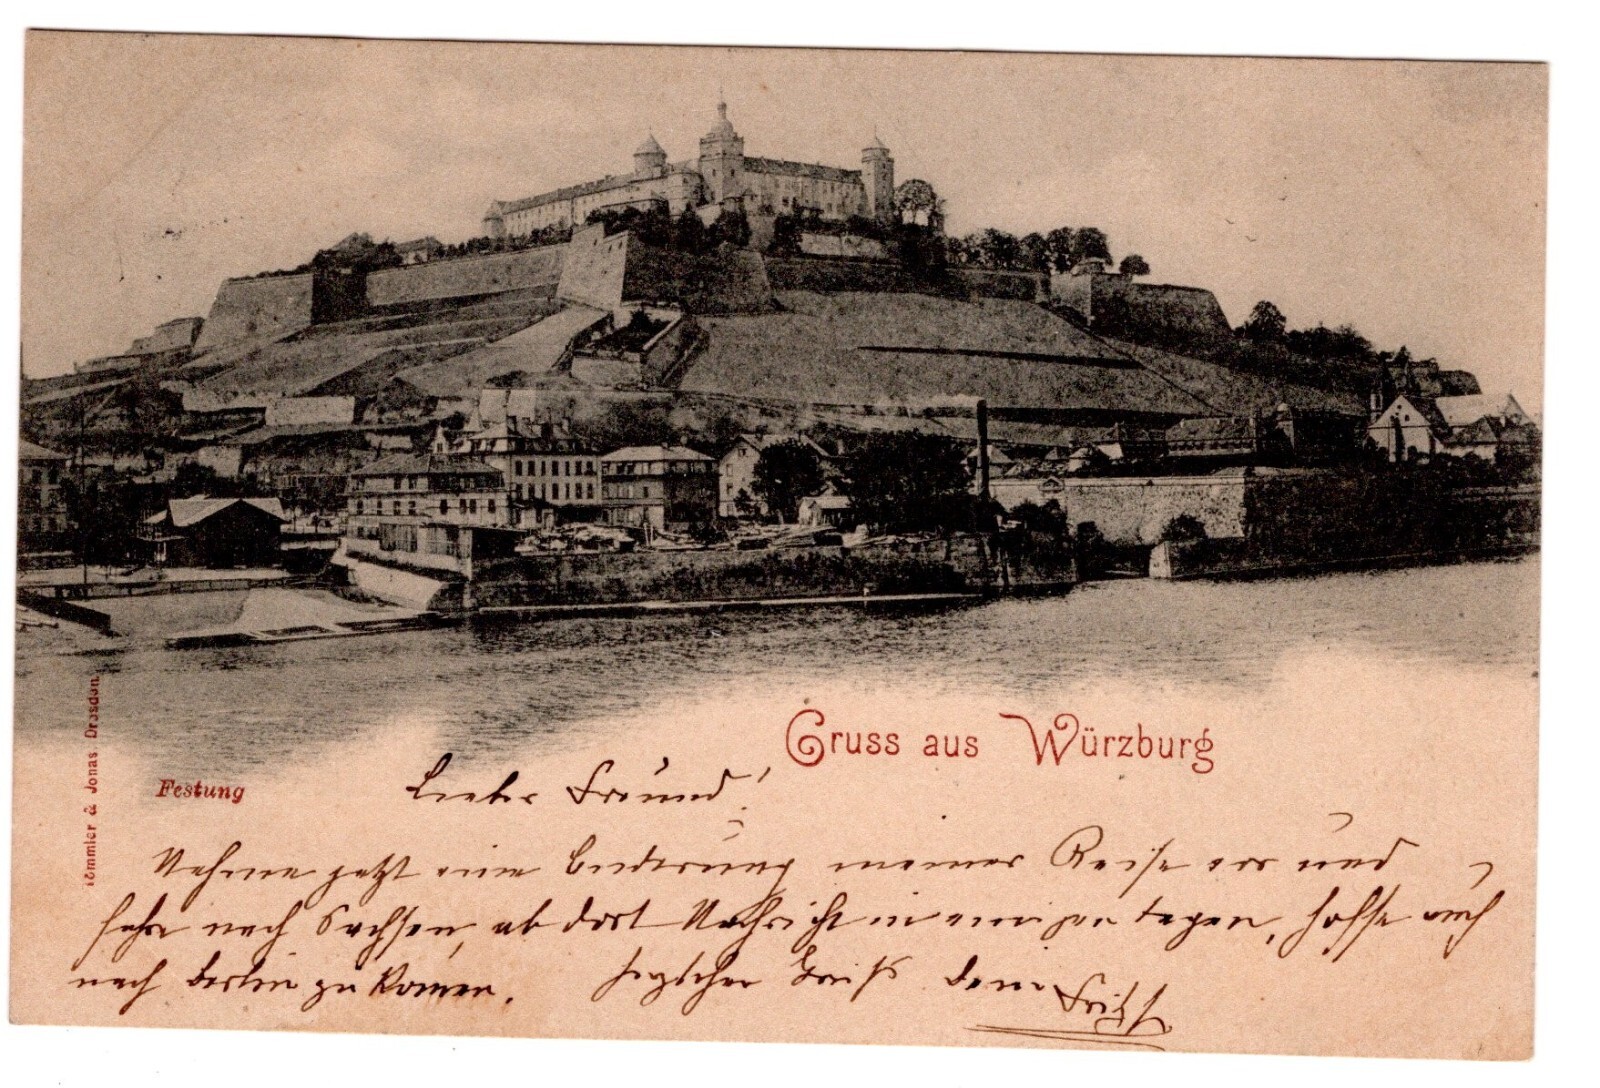 Gruss aus Würzburg
Festung
Römmler & Jonas Dresden.
Lieber Freund!
Nehme jetzt eine Enderung meiner Reise vor und
fahre nach Sachsen, ab dort Nachricht in einigen tagen, hoffe auch
nach Berlin zu komen. Herzlichen Gruß Dein Fritz